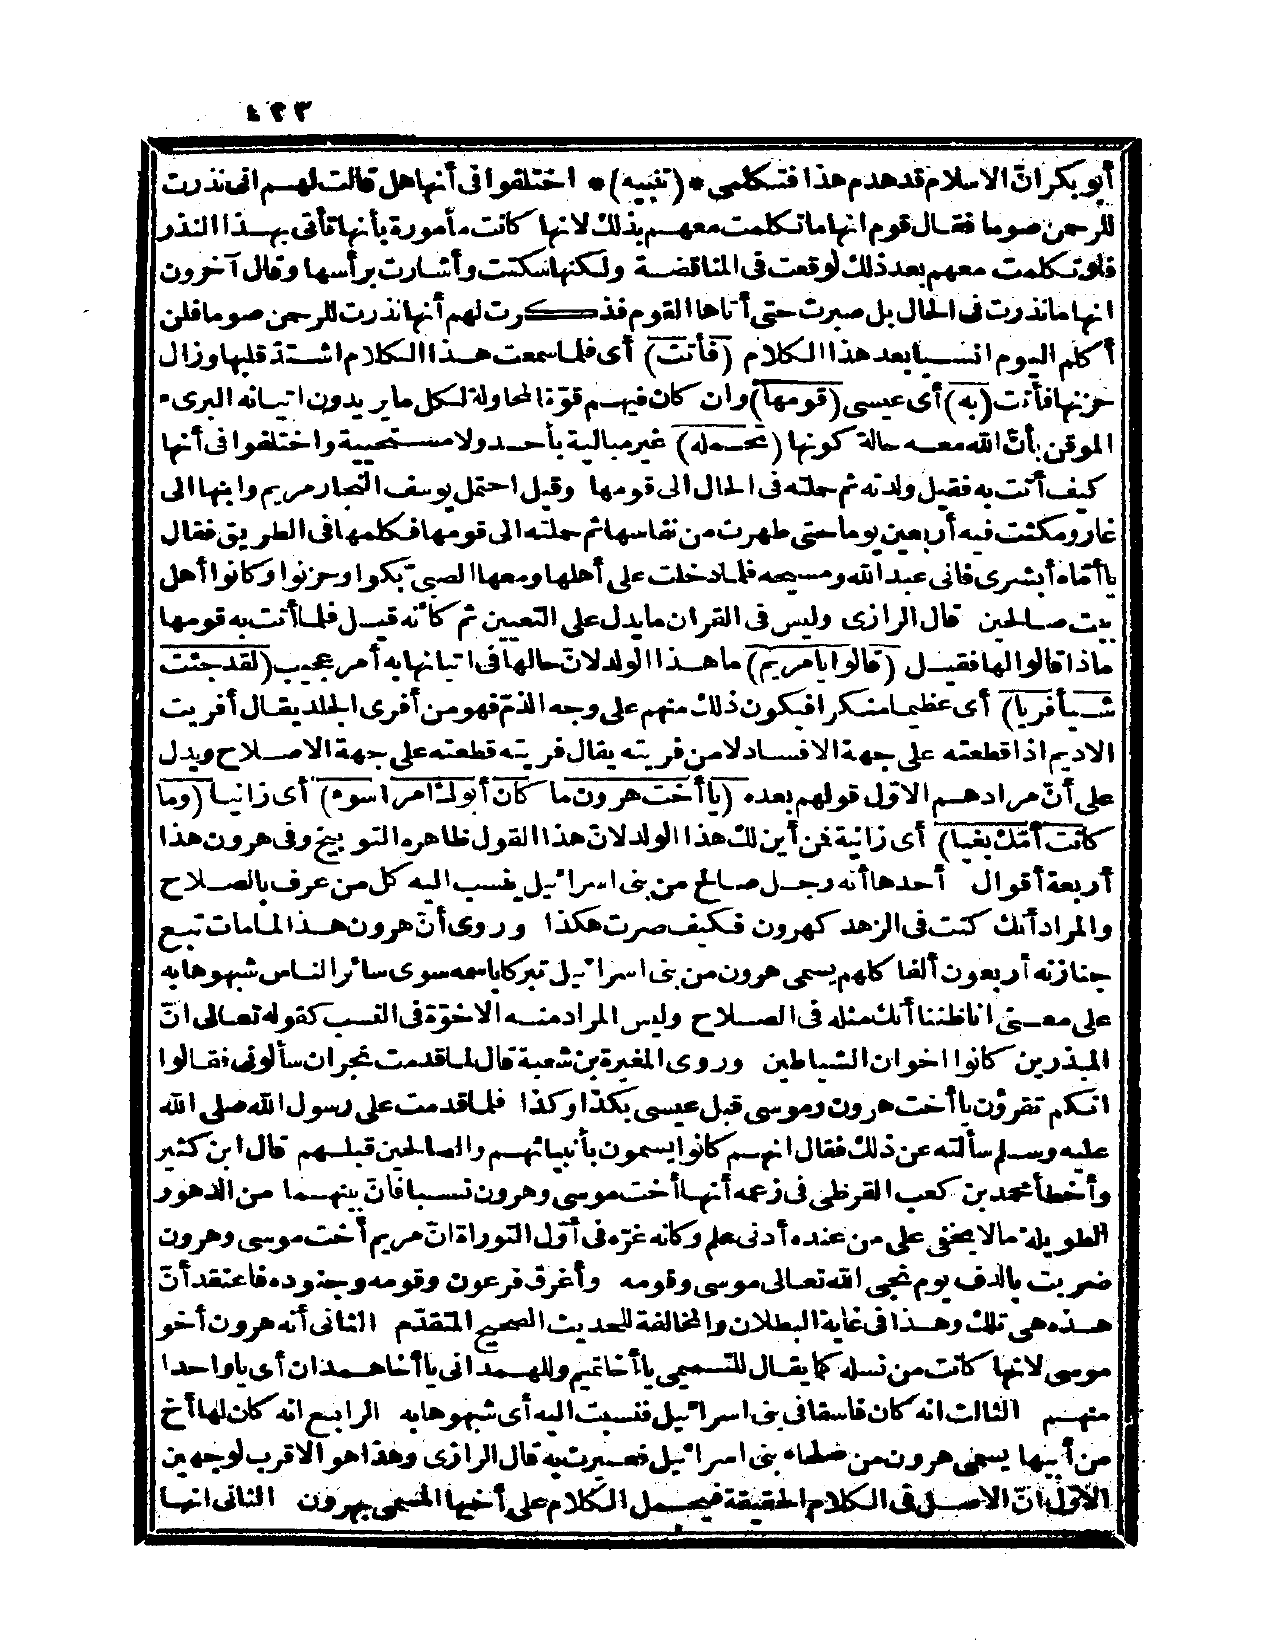 ٤٢٣
أبو بكر انّ الاسلام قد هدم هذا فتكلمى * (تنبيه) * اختلفوا فى أنها هل قالت لهم انى نذرت
للرحمن صوما فقال قوم انها ما تكلمت معهم بذلك لانها كانت مأمورة بأنها تأتى بهذا النذر
فلو تكلمت معهم بعد ذلك لوقعت فى المناقضة ولكنها سكتت وأشارت برأسها وقال آخرون
انها ما نذرت فى الحال بل صبرت حتى أتاها القوم فذكرت لهم أنها نذرت للرحمن صوما فلن
أكلم اليوم انسيا بعد هذا الكلام (فأتت) أى فلما سمعت هذا الكلام اشتدّ قلبها وزال
حزنها فأتت (به) أى عيسى (قومها) وان كان فيهم قوّة المحاولة لكل ما يريدون اتيانه البرىء
الموقن بأنّ الله معه حالة كونها (تحمله) غير مبالية بأحد ولا مستحيية واختلفوا فى أنها
كيف أتت به فقيل ولدته ثم حملته فى الحال الى قومها وقيل احتمل يوسف النجار مريم وابنها الى
غار ومكثت فيه أربعين يوما حتى طهرت من نفاسها ثم حملته الى قومها فكلمها فى الطريق فقال
يا أمّاه أبشرى فانى عبد الله ومسيحه فلما دخلت على أهلها ومعها الصبىّ بكوا وحزنوا وكانوا أهل
بيت صالحين قال الرازى وليس فى القرآن ما يدل على التعيين ثم كأنه قيل فلما أتت به قومها
ماذا قالوا لها فقيل (قالوا يا مريم) ما هذا الولد لانّ حالها فى اتيانها به أمر عجيب (لقد جئت
شيأ فريا) أى عظيما منكرا فيكون ذلك منهم على وجه الذمّ فهو من أفرى الجلد يقال أفريت
الاديم اذا قطعته على جهة الافساد لا من فريته يقال فريته قطعته على جهة الاصلاح ويدل
على أنّ مرادهم الاوّل قولهم بعده (يا أخت هرون ما كان أبوك امرأ سوء) أى زانيا (وما
كانت أمّك بغيا) أى زانية فمن أين لك هذا الولد لانّ هذا القول ظاهره التوبيخ وفى هرون هذا
أربعة أقوال أحدها أنه رجل صالح من بنى اسرائيل ينسب اليه كل من عرف بالصلاح
والمراد أنك كنت فى الزهد كهرون فكيف صرت هكذا وروى أنّ هرون هذا لما مات تبع
جنازته أربعون ألفا كلهم يسمى هرون من بنى اسرائيل تبركا باسمه سوى سائر الناس شبهوها به
على معنى اناظننا أنك مثله فى الصلاح وليس المراد منه الاخوّة فى النسب كقوله تعالى انّ
المبذرين كانوا اخوان الشياطين وروى المغيرة بن شعبة قال لما قدمت نجران سألونى فقالوا
انكم تقرؤن يا أخت هرون وموسى قبل عيسى بكذا وكذا فلما قدمت على رسول الله صلى الله
عليه وسلم سألته عن ذلك فقال انهم كانوا يسمون بأنبيائهم والصالحين قبلهم قال ابن كثير
وأخطأ محمد بن كعب القرظى فى زعمه أنها أخت موسى وهرون نسبا فانّ بينهما من الدهور
الطويلة ما لا يخفى على من عنده أدنى علم وكأنه غرّه فى أوّل التوراة انّ مريم أخت موسى وهرون
ضربت بالدف يوم نجى الله تعالى موسى وقومه وأغرق فرعون وقومه وجنوده فاعتقد أنّ
هذه هى تلك وهذا فى غاية البطلان والمخالفة للحديث الصحيح المتقدّم الثانى أنه هرون أخو
موسى لانها كانت من نسله كما يقال للتميمى يا أخا تميم وللهمدانى يا أخا همدان أى يا واحدا
منهم الثالث انه كان فاسقا فى بنى اسرائيل فنسبت اليه أى شبهوها به الرابع انه كان لها أخ
من أبيها يسمى هرون من صلحاء بنى اسرائيل فعيرت به قال الرازى وهذا هو الاقرب لوجهين
الاوّل انّ الاصل فى الكلام الحقيقة فيحمل الكلام على أخيها المسمى بهرون الثانى انها